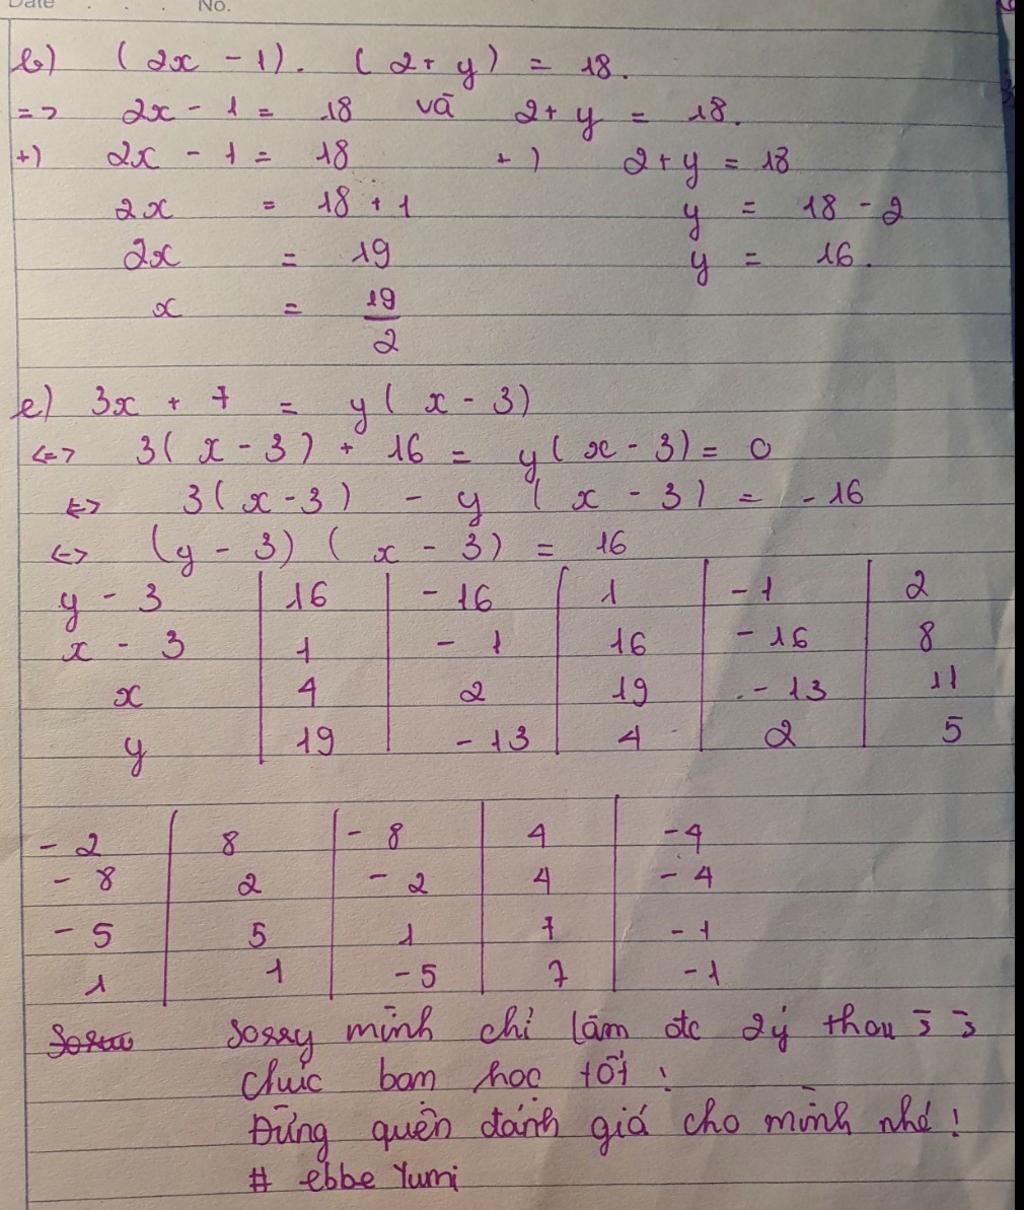 Date . . . No.
b) (2x - 1). (2 + y) = 18.
=> 2x - 1 = 18 và 2 + y = 18.
+) 2x - 1 = 18 +) 2 + y = 18
2x = 18 + 1 y = 18 - 2
2x = 19 y = 16.
x = 19/2
e) 3x + 7 = y( x - 3)
<=> 3( x - 3) + 16 = y(x - 3) = 0
<=> 3(x - 3) - y (x - 3) = -16
<=> (y - 3) ( x - 3) = 16
y - 3 | 16 | - 16 | 1 | - 1 | 2
x - 3 | 1 | - 1 | 16 | - 16 | 8
x | 4 | 2 | 19 | - 13 | 11
y | 19 | - 13 | 4 | 2 | 5
- 2 | 8 | - 8 | 4 | - 4
- 8 | 2 | - 2 | 4 | - 4
- 5 | 5 | 1 | 7 | - 1
1 | 1 | - 5 | 7 | - 1
Sorry mình chỉ làm đc 2ý thou
chúc bạn học tốt !
Đừng quên đánh giá cho mình nhé !
# ebbe Yumi